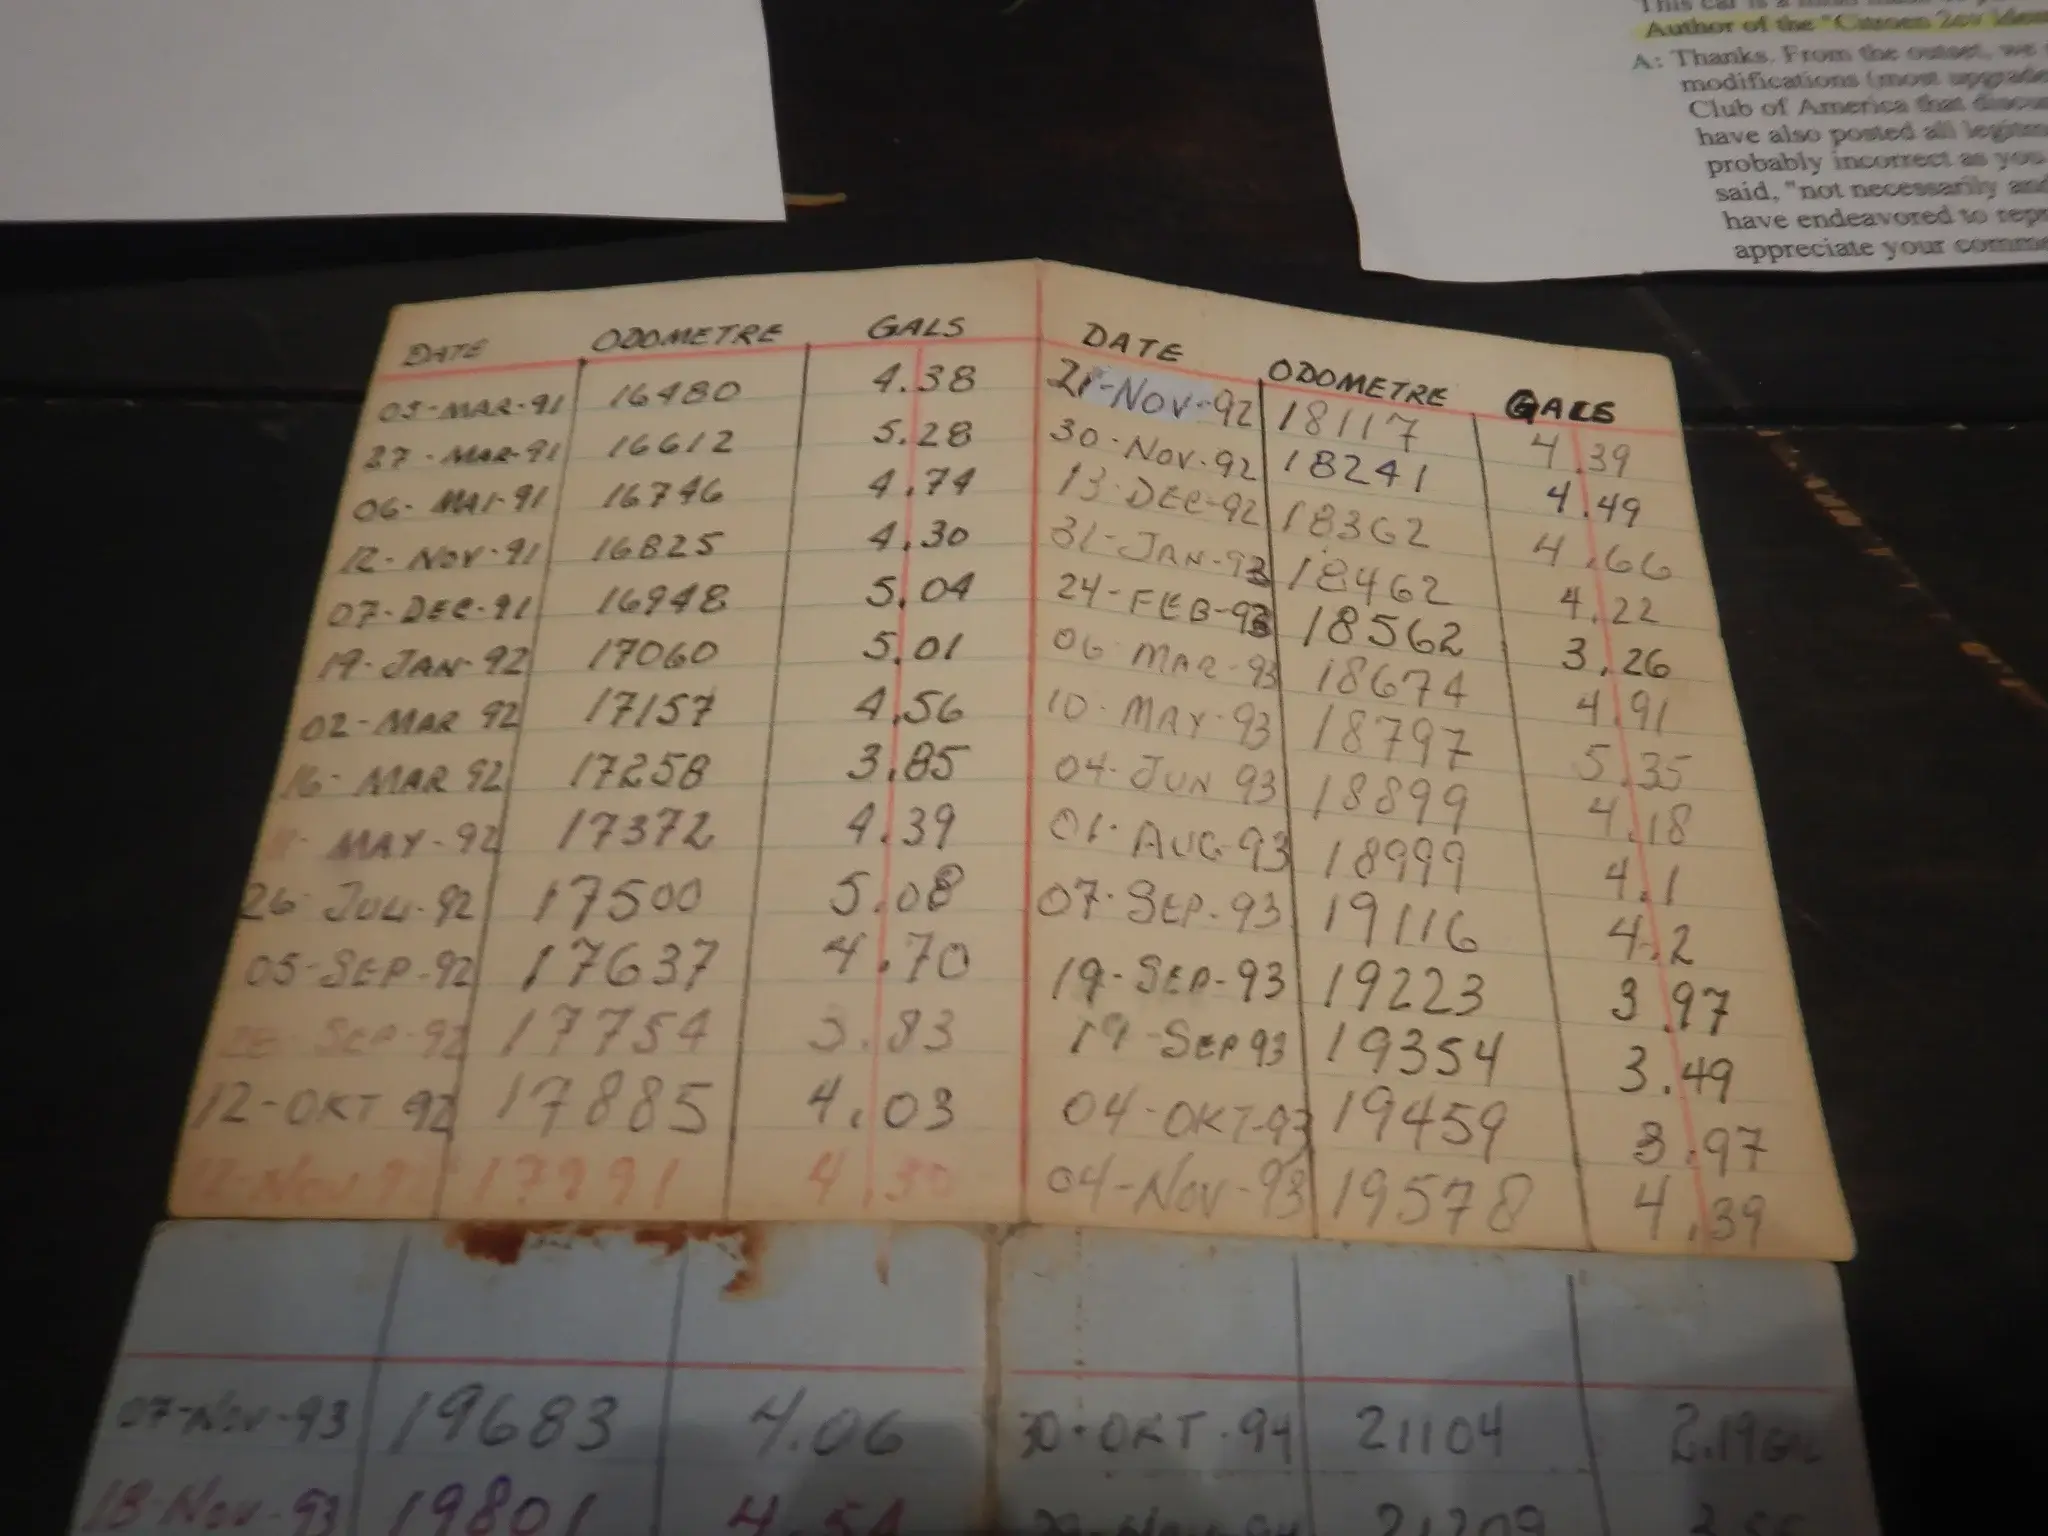 This car is a
Author of the "Citroen 2cv
A: Thanks. From the outset, we
modifications (most upgrade
Club of America that discu
have also posted all legitim
probably incorrect as you
said, "not necessarily and
have endeavored to repr
appreciate your comme
DATE ODOMETRE GALS
05-MAR-91 16480 4.38
27-MAR-91 16612 5.28
06-MAI-91 16746 4.74
12-NOV-91 16825 4.30
07-DEC-91 16948 5.04
19-JAN-92 17060 5.01
02-MAR 92 17157 4.56
16-MAR 92 17258 3.85
MAY-92 17372 4.39
26-JUL-92 17500 5.08
05-SEP-92 17637 4.70
SEP-92 17754 3.83
12-OKT 92 17885 4.03
NOV 17991 4.30
DATE ODOMETRE GALS
21-NOV-92 18117 4.39
30-NOV-92 18241 4.49
13-DEC-92 18362 4.66
31-JAN-93 18462 4.22
24-FEB-93 18562 3.26
06 MAR-93 18674 4.91
10-MAY-93 18797 5.35
04-JUN 93 18899 4.18
01-AUG-93 18999 4.1
07-SEP-93 19116 4.2
19-SEP-93 19223 3.97
19-SEP 93 19354 3.49
04-OKT-93 19459 3.97
04-NOV-93 19578 4.39
07-NOV-93 19683 4.06
18-NOV-93 19801 4.54
30-OKT-94 21104 2.19
21209